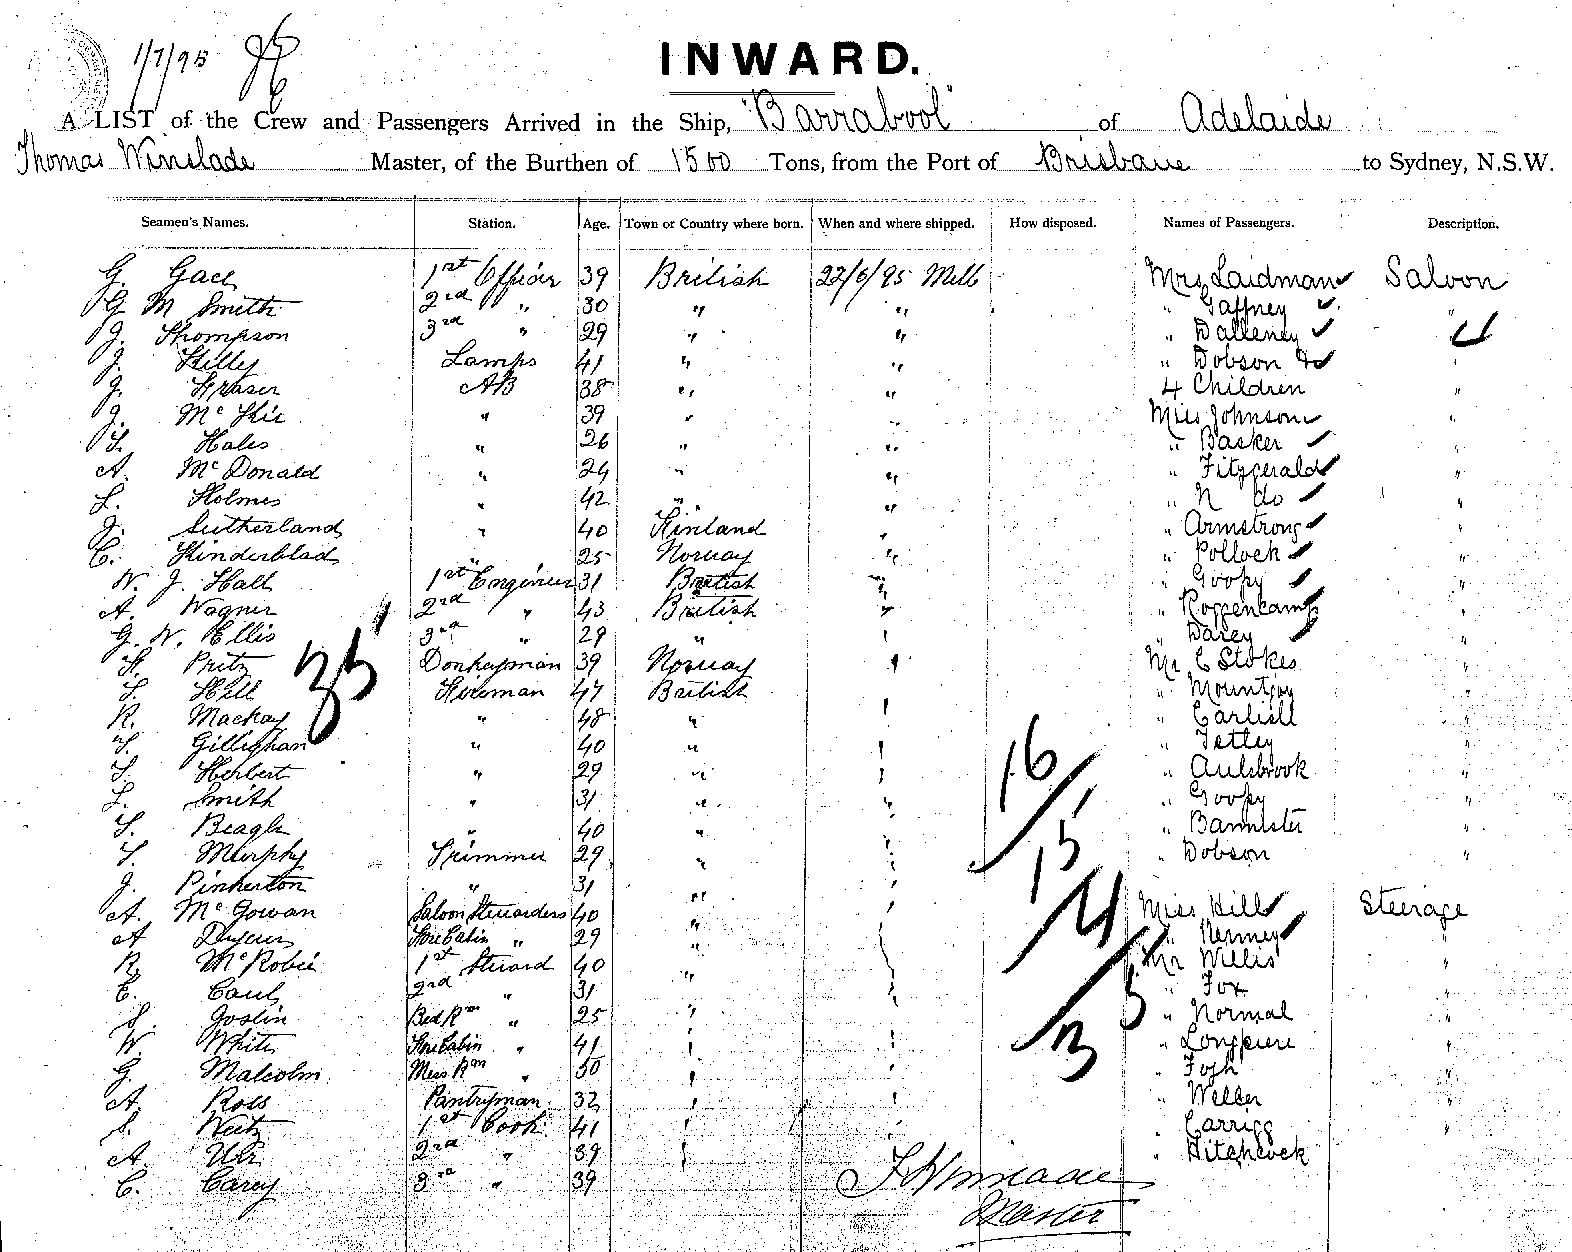 1/7/95
INWARD.
A LIST of the Crew and Passengers Arrived in the Ship, "Barrabool" of Adelaide
Thomas Winslade Master, of the Burthen of 1500 Tons, from the Port of Brisbane to Sydney, N.S.W.
Seamen's Names. Station. Age. Town or Country where born. When and where shipped. How disposed. Names of Passengers. Description.
G. 1st Officer 39 British 22/6/95 Melb Mrs Laidman Saloon
G M Smith 2nd " 30 " " " Gaffney "
J. Thompson 3rd " 29 " " " Dalleney 4
J. Lamps 41 " " " Dobson & "
J. Fraser AB 38 " " 4 Children "
J. " 39 " " Miss Johnson "
T. Hales " 26 " " " Basker "
A. McDonald " 24 " " " Fitzgerald "
L. Holmes " 42 " " " N do "
J. Sutherland " 40 Finland " " Armstrong "
C. Finderblad " 25 Norway " " Pollock "
W. J. Hall 1st Engineer 31 British " " Goopy "
A. Wagner 2nd " 43 British " " Roggenkamp "
G. W. Ellis 3rd " 29 " " " Darey "
35
Pritz Donkeyman 39 Norway " Mr C Stokes "
T. Hill Fireman 47 British " " Mountjoy "
R. Mackay " 48 " " " Carlisle "
T. Gilleghan " 40 " " " Tetley "
T. Herbert " 29 " " " Aulsbrook "
L. Smith " 31 " " " Goopy "
T. Beagle " 40 " " " Bannister "
T. Murphy Trimmer 29 " " " Dobson "
J. Pinkerton " 31 " "
A. McGowan Saloon Stewardess 40 " " Miss Hill Steerage
A Fore Cabin " 29 " " " Kenney "
R. McRobie 1st Steward 40 " " Mr Willis "
C. Caul 2nd " 31 " " " Fox "
S. Goslin Bed Rm " 25 " " " Normal "
W. White Fore Cabin " 41 " " " "
G. Malcolm Mess Rm " 50 " " " "
A. Ross Pantryman 32 " " " Weller "
S. 1st Cook 41 " " " Carrigg "
A. 2nd " 39 " " Hitchcock
C. Carey 3rd " 39
16
15
4
5
13
T Winslade
Master